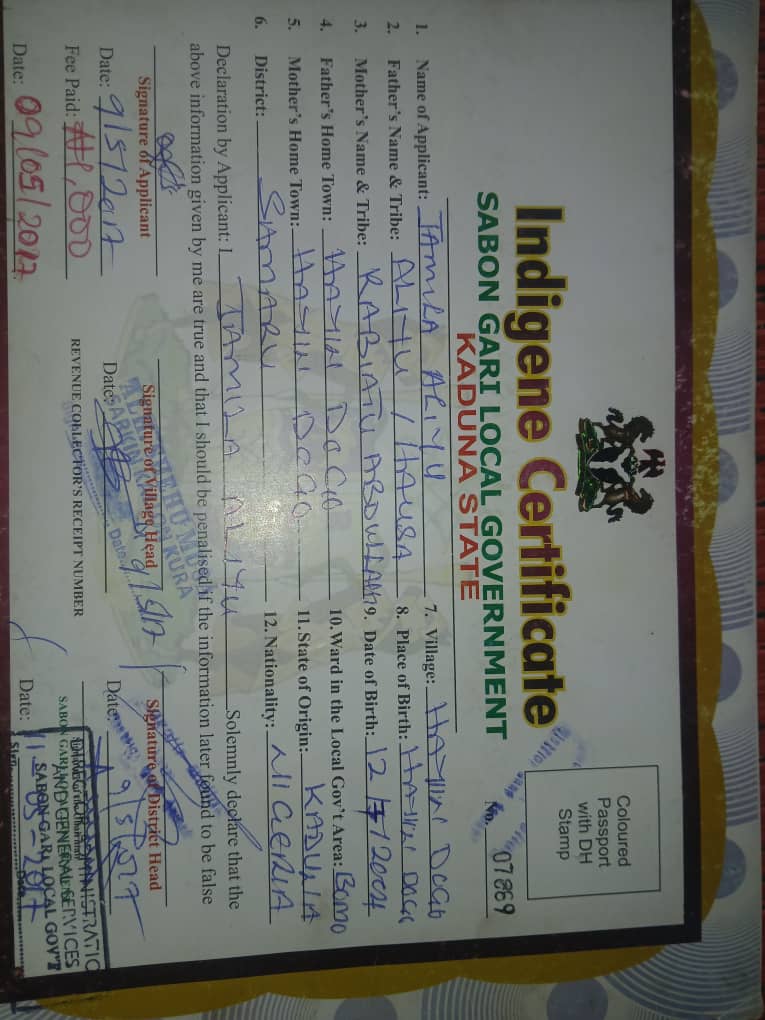 Indigene Certificate
SABON GARI LOCAL GOVERNMENT
KADUNA STATE
Coloured
Passport
with DH
Stamp
No. 07869
1. Name of Applicant: JAMILA ALIYU
2. Father's Name & Tribe: ALIYU / HAUSA
3. Mother's Name & Tribe: RABIATU
4. Father's Home Town: HAYIN DOGO
5. Mother's Home Town: HAYIN DOGO
6. District: SAMARU
7. Village: HAYIN DOGO
8. Place of Birth: HAYIN DOGO
9. Date of Birth: 12
10. Ward in the Local Gov't Area: BOMO
11. State of Origin: KADUNA
12. Nationality: NIGERIA
Declaration by Applicant: I JAMILA ALIYU Solemnly declare that the
above information given by me are true and that I should be penalised if the information later found to be false
Signature of Applicant
Date: 9/5/2017
Fee Paid: ₦1,000
Date: 09/05/2017
Signature of Village Head
Date: 9/5/17
REVENUE COLLECTOR'S RECEIPT NUMBER
Signature of District Head
Date:
Date: 11-05-2017
AND GENERAL SERVICES
SABON GARI LOCAL GOV'T